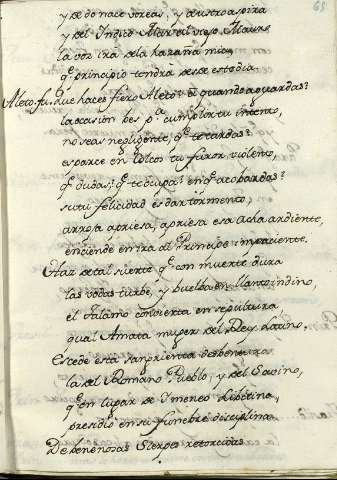 65
y de do nace voreas, y a austro aspira
y del Indico Mar al viejo Mauro
la voz irá de la hazaña mia
q. principio tendrà desde este dia.
Aleto. fu. Que haces fiero Aleto? à quando aguardas?
la ocasion bes p.ª cumplir tu intento,
no seas negligente, q. te tardas?
esparce en Colcos tu furor violento,
q. dudas? q. te ocupa? en q. acobardas?
si tu felicidad es dar tormento,
arroja apriesa, apriesa esa Acha ardiente,
enciende en ira al Principe impaciente.
Haz de tal suerte q. con muerte dura
las vodas turbe, y buelba en llanto indino,
el Talamo convierta en sepultura
qual Amata muger del Rey Latino,
Escede esta sangrienta desbentura
la del Romano Pueblo, y del Savino,
q. en lugar de Imeneo Libitina,
presidio en su funebre disciplina.
De benenosas Sierpes retorcidas